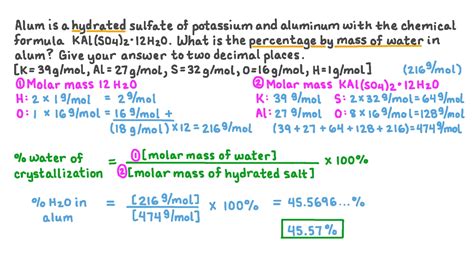 Alum is a hydrated sulfate of potassium and aluminum with the chemical
formula KAl(SO4)2•12H2O. What is the percentage by mass of water in
alum? Give your answer to two decimal places.
[K=39g/mol, Al=27g/mol, S=32g/mol, O=16g/mol, H=1g/mol] (216g/mol)
① Molar mass 12 H2O ② Molar mass KAl(SO4)2•12H2O
H: 2 x 1g/mol = 2g/mol K: 39 g/mol S: 2x32g/mol=64g/mol
O: 1 x 16g/mol = 16g/mol + Al: 27g/mol O: 8x16g/mol=128g/mol
(18 g/mol) x12 = 216g/mol (39+27+64+128+216)=474g/mol
% water of crystallization = ① [molar mass of water] / ② [molar mass of hydrated salt] x 100%
% H2O in alum = [216g/mol] / [474g/mol] x 100% = 45.5696...%
45.57%